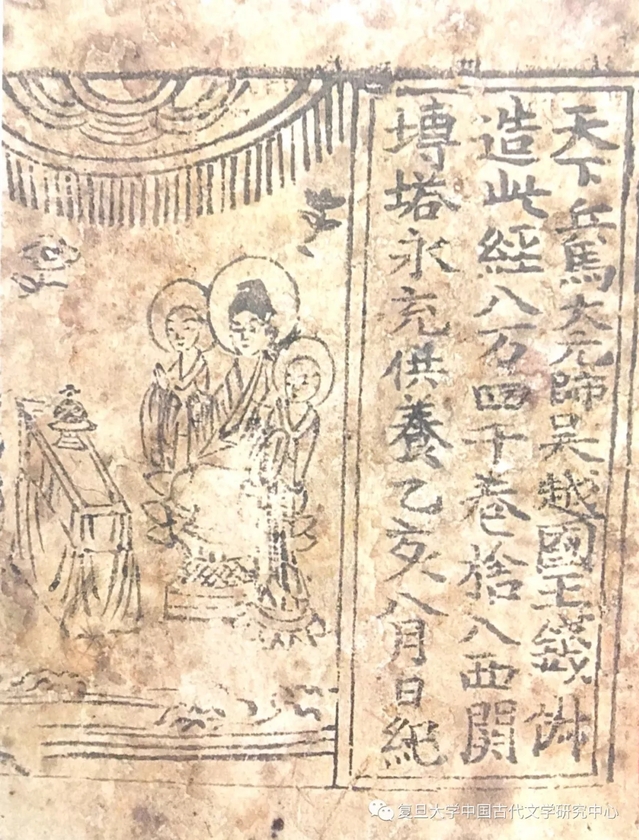 天下兵馬大元帥吳越國王錢俶
造此經八万四千卷捨入西關
塼塔永充供養乙亥八月日紀
复旦大学中国古代文学研究中心